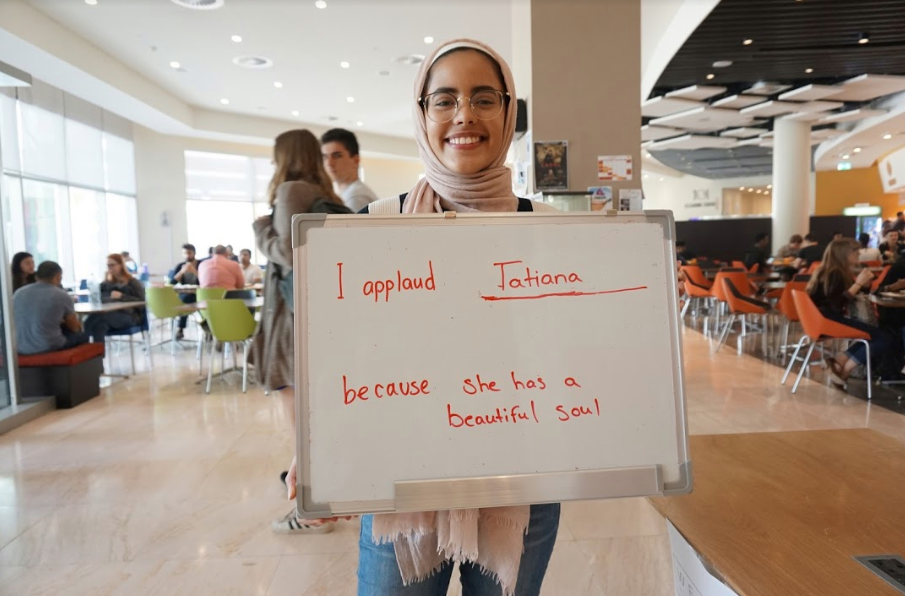 I applaud Tatiana
because she has a
beautiful soul